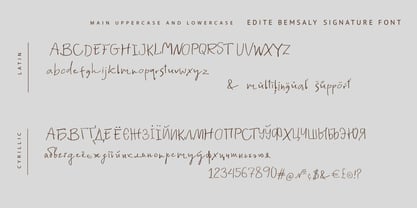 MAIN UPPERCASE AND LOWERCASE
EDITE BEMSALY SIGNATURE FONT
LATIN
ABCDEFGHIJKLMNOPQRSTUVWXYZ
abcdefghijklmnopqrstuvwxyz
& multilingual support
CYRILLIC
АБВГҐДЕЁЄЖЗІЇЙИКЛМНОПРСТУЎФХЦЧШЫЬЭЮЯ
1234567890#@№%$&€£©!?